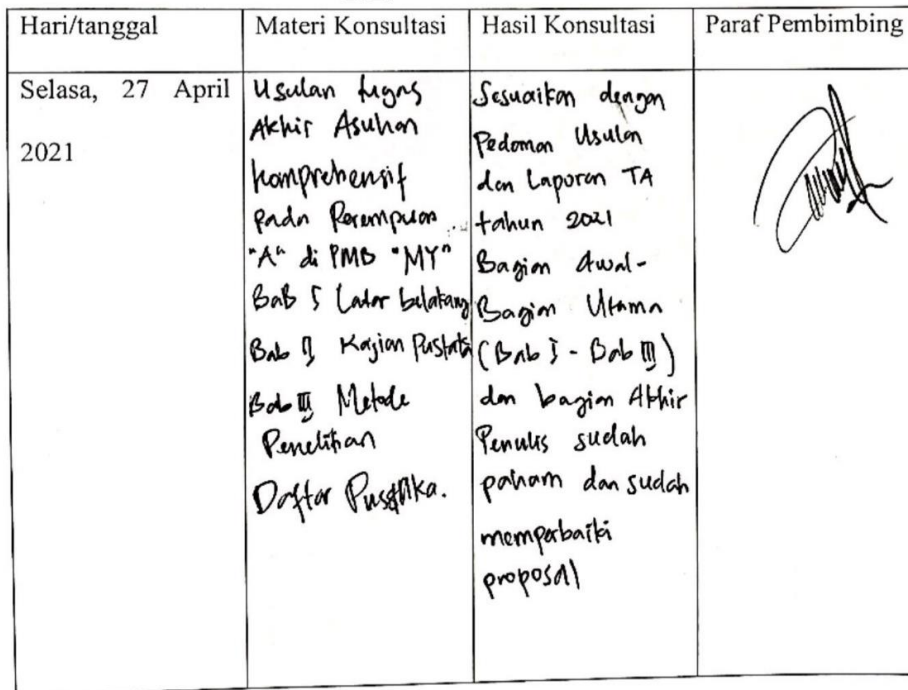 Hari/tanggal
Materi Konsultasi
Hasil Konsultasi
Paraf Pembimbing
Selasa, 27 April
2021
Usulan tugas
Akhir Asuhan
komprehensif
pada Perempuan
"A" di PMB "MY"
BaB I Latar belakang
Bab II Kajian Pustaka
Bab III Metode
Penelitian
Daftar Pustaka.
Sesuaikan dengan
Pedoman Usulan
dan Laporan TA
tahun 2021
Bagian Awal-
Bagian Utama
(Bab I - Bab III)
dan bagian Akhir
Penulis sudah
paham dan sudah
memperbaiki
proposal